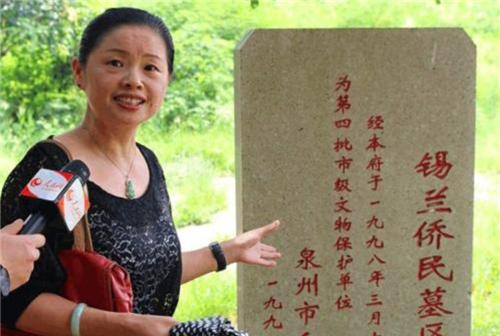 锡兰侨民墓
经本府于一九九八年三月
为第四批市级文物保护单位
泉州市
一九九
人民网